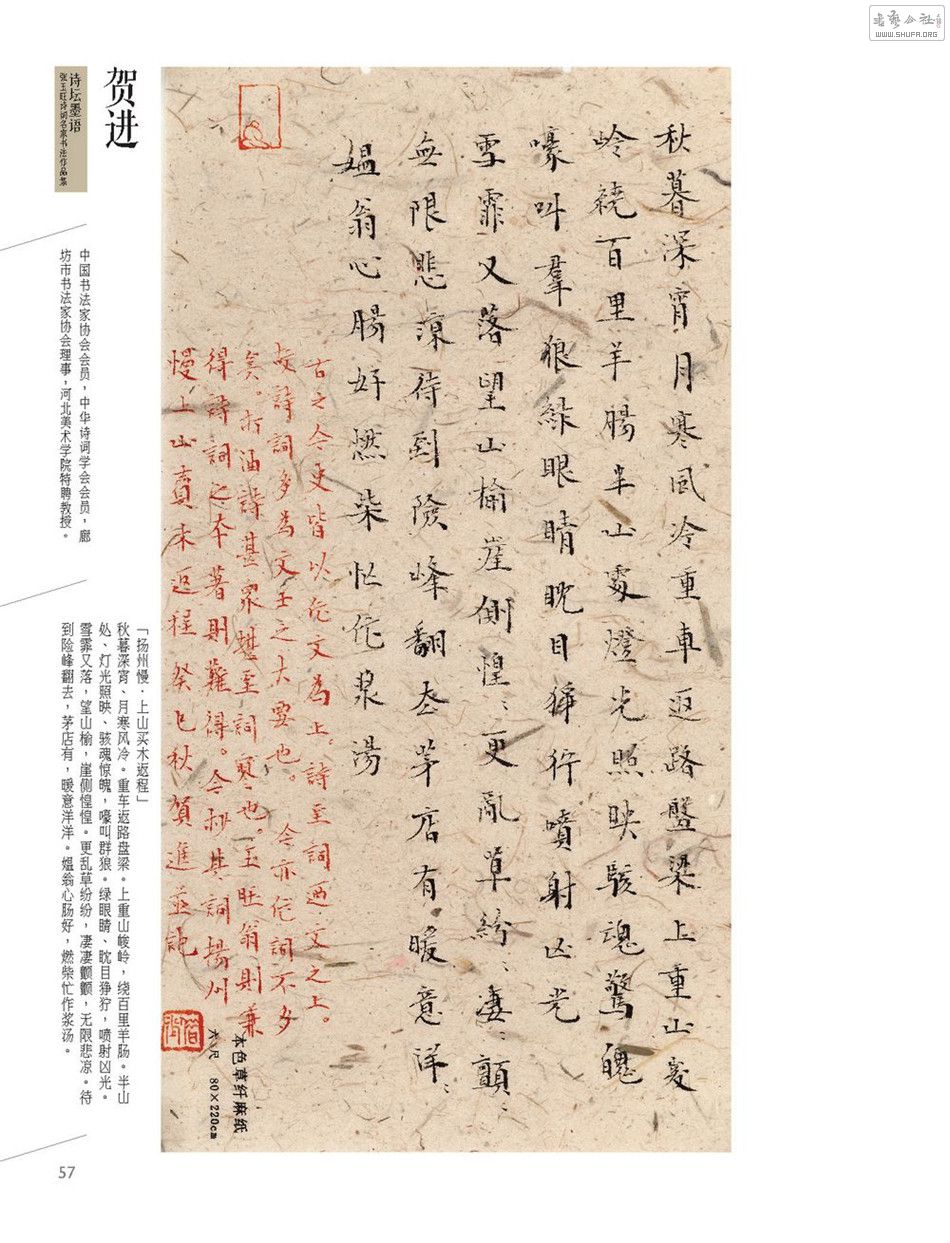 書法公社
WWW.SHUFA.ORG
贺进
诗坛墨语
张玉旺诗词名家书法作品集
中国书法家协会会员，中华诗词学会会员，廊
坊市书法家协会理事，河北美术学院特聘教授。
「扬州慢·上山买木返程」
秋暮深宵、月寒风冷。重车返路盘梁。上重山峻岭，绕百里羊肠。半山
处、灯光照映、骇魂惊魄，嚎叫群狼。绿眼睛、眈目狰狞，喷射凶光。
雪霏又落，望山榆，崖侧惶惶。更乱草纷纷，凄凄颤颤，无限悲凉。待
到险峰翻去，茅店有，暖意洋洋。媪翁心肠好，燃柴忙作浆汤。
秋暮深宵月寒风冷重車返路盤梁上重山峻
岭繞百里羊腸半山處燈光照映駭魂驚魄
嚎叫羣狼綠眼睛眈目狰狞噴射凶光
雪霏又落望山榆崖側惶〻更亂草紛〻凄〻顫〻
無限悲涼待到險峰翻去茅店有暖意洋〻
媪翁心腸好燃柴忙作漿湯
古之今更皆以作文為上。詩至詞迺文之上。
故詩詞多為文士之大要也。今亦作詞不多
矣。打油詩甚眾甚至詞寞也。玉旺翁則兼
得詩詞之本著則難得。今抄其詞揚州
慢上山賣木返程癸巳秋賀進並記
本色草纤麻纸
六尺 80×220cm
57